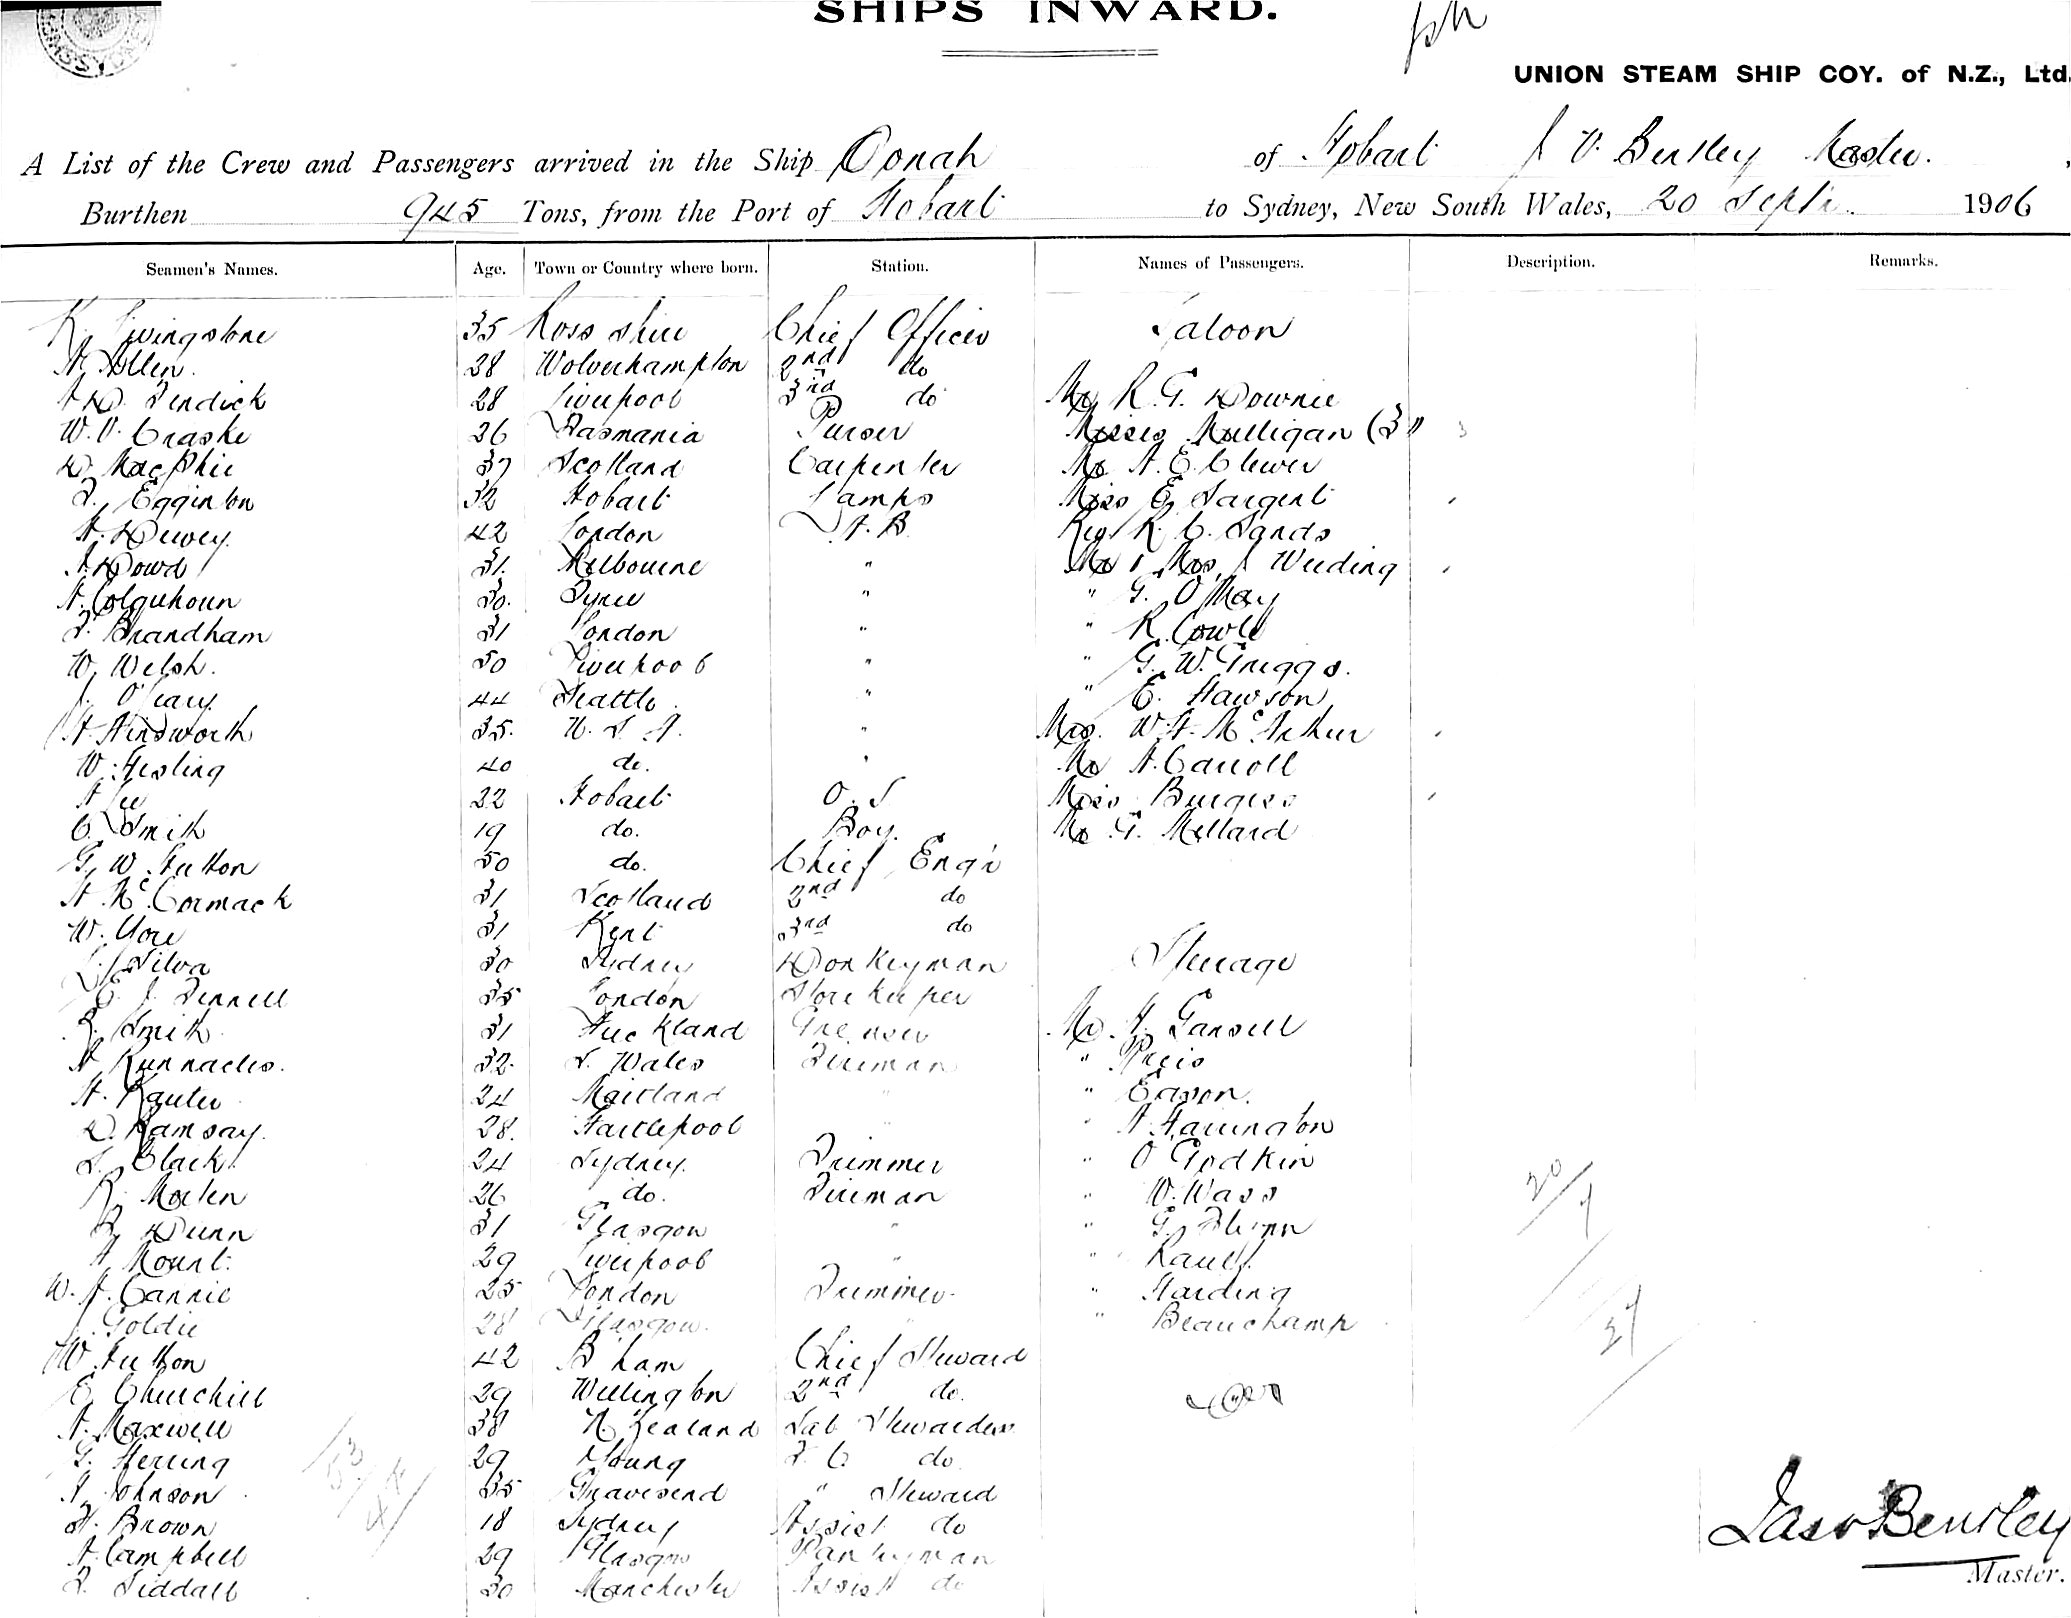 SHIPS INWARD.
UNION STEAM SHIP COY. of N.Z., Ltd.
A List of the Crew and Passengers arrived in the Ship Oonah of Hobart J V. Bentley Master.
Burthen 945 Tons, from the Port of Hobart to Sydney, New South Wales, 20 Septr. 1906
Seamen's Names. Age. Town or Country where born. Station. Names of Passengers. Description. Remarks.
K. Livingstone 35 Ross shire Chief Officer Saloon
H. Allen. 28 Wolverhampton 2nd do
28 Liverpool 3rd do Mr R. G. Downie
W. V. Craske 26 Tasmania Purser Misses Mulligan (3)
D. MacPhie 37 Scotland Carpenter Mr A. E. Clewer
T. Egginton 32 Hobart Lamps Miss E. Sargent
H. Dewey. 42 London A. B. Rev R. C. Sands
J. Dowd 31. Melbourne " Mr & Mrs J Weeding
A. Colquhoun 30. Tyree " " G. O'May
T. Brandham 31 London " " R. Cowle
W. Welsh. 50 Liverpool " " G. W. Griggs.
J. O'Leary. 44 Seattle. " " E. Hawson
H. Aindworth 35. U. S. A. " Mrs. W. A. McArthur
W. Hesling 40 do. " Mr A. Carroll
A Lee 22 Hobart O. S Miss Burgess
C. Smith 19 do. Boy. Mr G. Millard
G. W. Hutton 50 do. Chief Engr
A. McCormack 31 Scotland 2nd do
W. Yore 31 Kent 3rd do
L. Silva 30 Sydney Donkeyman Steerage
E. J. Fennell 35 London Storekeeper
R. Smith 31 Auckland Greaser Mr. H. Gansell
A Runnacles. 32. S. Wales Fireman " Preis
H. Rauter 24 Maitland " " Eason.
D. Ramsay. 28. Hartlepool " " A Harrington
S. Clark. 24 Sydney. Trimmer " O Godkin
R. Maken 26 do. Fireman " W. Wass
R. Dunn 31 Glasgow " " G. Flynn
A. Mount. 29 Liverpool " "
W. H. Cannie 25 London Trimmer. " Harding
J. Goldie 28 Glasgow. " " Beauchamp
W. Hutton 42 B'ham Chief Steward
E. Churchill 29 Wellington 2nd do.
A. Maxwell 38 N. Zealand Sal. Stewardess
G. Herring 29 Young F. C. do.
J. Johnson 35 Gravesend " Steward
H. Brown 18 Sydney Assist do
A. Campbell 29 Glasgow Pantryman
T. Siddall 30 Manchester Assist do
Jas V Bentley
Master.